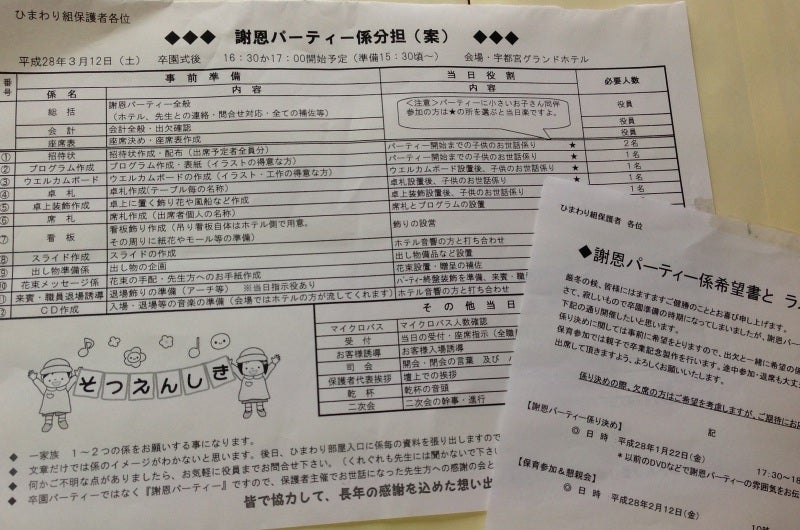 ひまわり組保護者各位
◆◆◆ 謝恩パーティー係分担（案） ◆◆◆
平成28年3月12日（土） 卒園式後 16：30か17：00開始予定（準備15：30頃～） 会場・宇都宮グランドホテル
番号 事前準備 当日役割 必要人数
係名 内容 内容
総括 謝恩パーティー全般 （ホテル、先生との連絡・問合せ対応・全ての補佐等） 役員
＜注意＞パーティーに小さいお子さん同伴
参加の方は★の所を選ぶと当日楽ですよ。
会計 会計全般・出欠確認 役員
座席表 座席決め・座席表作成 役員
① 招待状 招待状作成・配布（出席予定者全員分） パーティー開始までの子供のお世話係り ★ 2名
② プログラム作成 プログラム・表紙（イラストの得意な方） パーティー開始までの子供のお世話係り ★ 1名
③ ウエルカムボード ウエルカムボードの作成（イラスト・工作の得意な方） ウエルカムボード設置後、子供のお世話係り ★ 1名
④ 卓札 卓札作成(テーブル毎の名称) 卓札設置後、子供のお世話係り ★ 1名
⑤ 卓上装飾作成 卓上に置く飾り花や風船など作成 卓上装飾設置後、子供のお世話係り ★
⑥ 席札 席札作成（出席者個人の名称） 席札とプログラムの設置
⑦ 看板 看板飾り作成（吊り看板自体はホテル側で用意。
その周りに紙花やモール等の準備） 飾りの設営
⑧ スライド作成 スライドの作成 ホテル音響の方と打ち合わせ
⑨ 出し物準備係 出し物の企画 出し物備品など設置
⑩ 花束メッセージ係 花束の手配・先生方へのお手紙作成 花束設置・贈呈の補佐
⑪ 来賓・職員退場誘導 退場飾りの準備（アーチ等） ※当日指示役あり パーティ終盤装飾を準備、来賓・職
CD作成 入場・退場等の音楽の準備（会場ではホテルの方が流してくれます） ホテル音響の方と打ち合わせ
その他当日
マイクロバス マイクロバス人数確認
受付 当日の受付・座席指示（全職
お客様誘導 お客様入場誘導
司会 開会・閉会の言葉 及び
保護者代表挨拶 壇上での挨拶
乾杯 乾杯の音頭
二次会 二次会の幹事・進行
そつえんしき
◆ 一家族 1～2つの係をお願いする事になります。
◆ 文章だけでは係のイメージがわかないと思います。後日、ひまわり部屋入口に係毎の資料を張り出しますので
◆ 何かご不明な点がありましたら、お気軽に役員までお問合せ下さい。（くれぐれも先生には聞かないで下さい
◆ 卒園パーティーではなく『謝恩パーティー』ですので、保護者主催でお世話になった先生方への感謝の会と
皆で協力して、長年の感謝を込めた想い出
ひまわり組保護者 各位
◆謝恩パーティー係希望書と
厳冬の候、皆様にはますますご健勝のこととお喜び申し上げます。
さて、寂しいもので卒園準備の時期になってしまいましたが、謝恩パー
下記の通り開催したいと思います。
係り決めに関しては事前に希望をとりますので、出欠と一緒に希望の係
保育参加では親子で卒業記念製作を行います。途中参加・退席も大丈
出席して頂きますよう、よろしくお願いいたします。
係り決めの際、欠席の方はご希望を考慮しますが、ご期待にお
記
【謝恩パーティー係り決め】
◎ 日 時 平成28年1月22日(金) 17:30～18
＊以前のDVDなどで謝恩パーティーの雰囲気をお伝
【保育参加＆懇親会】
◎ 日 時 平成28年2月12日(金)